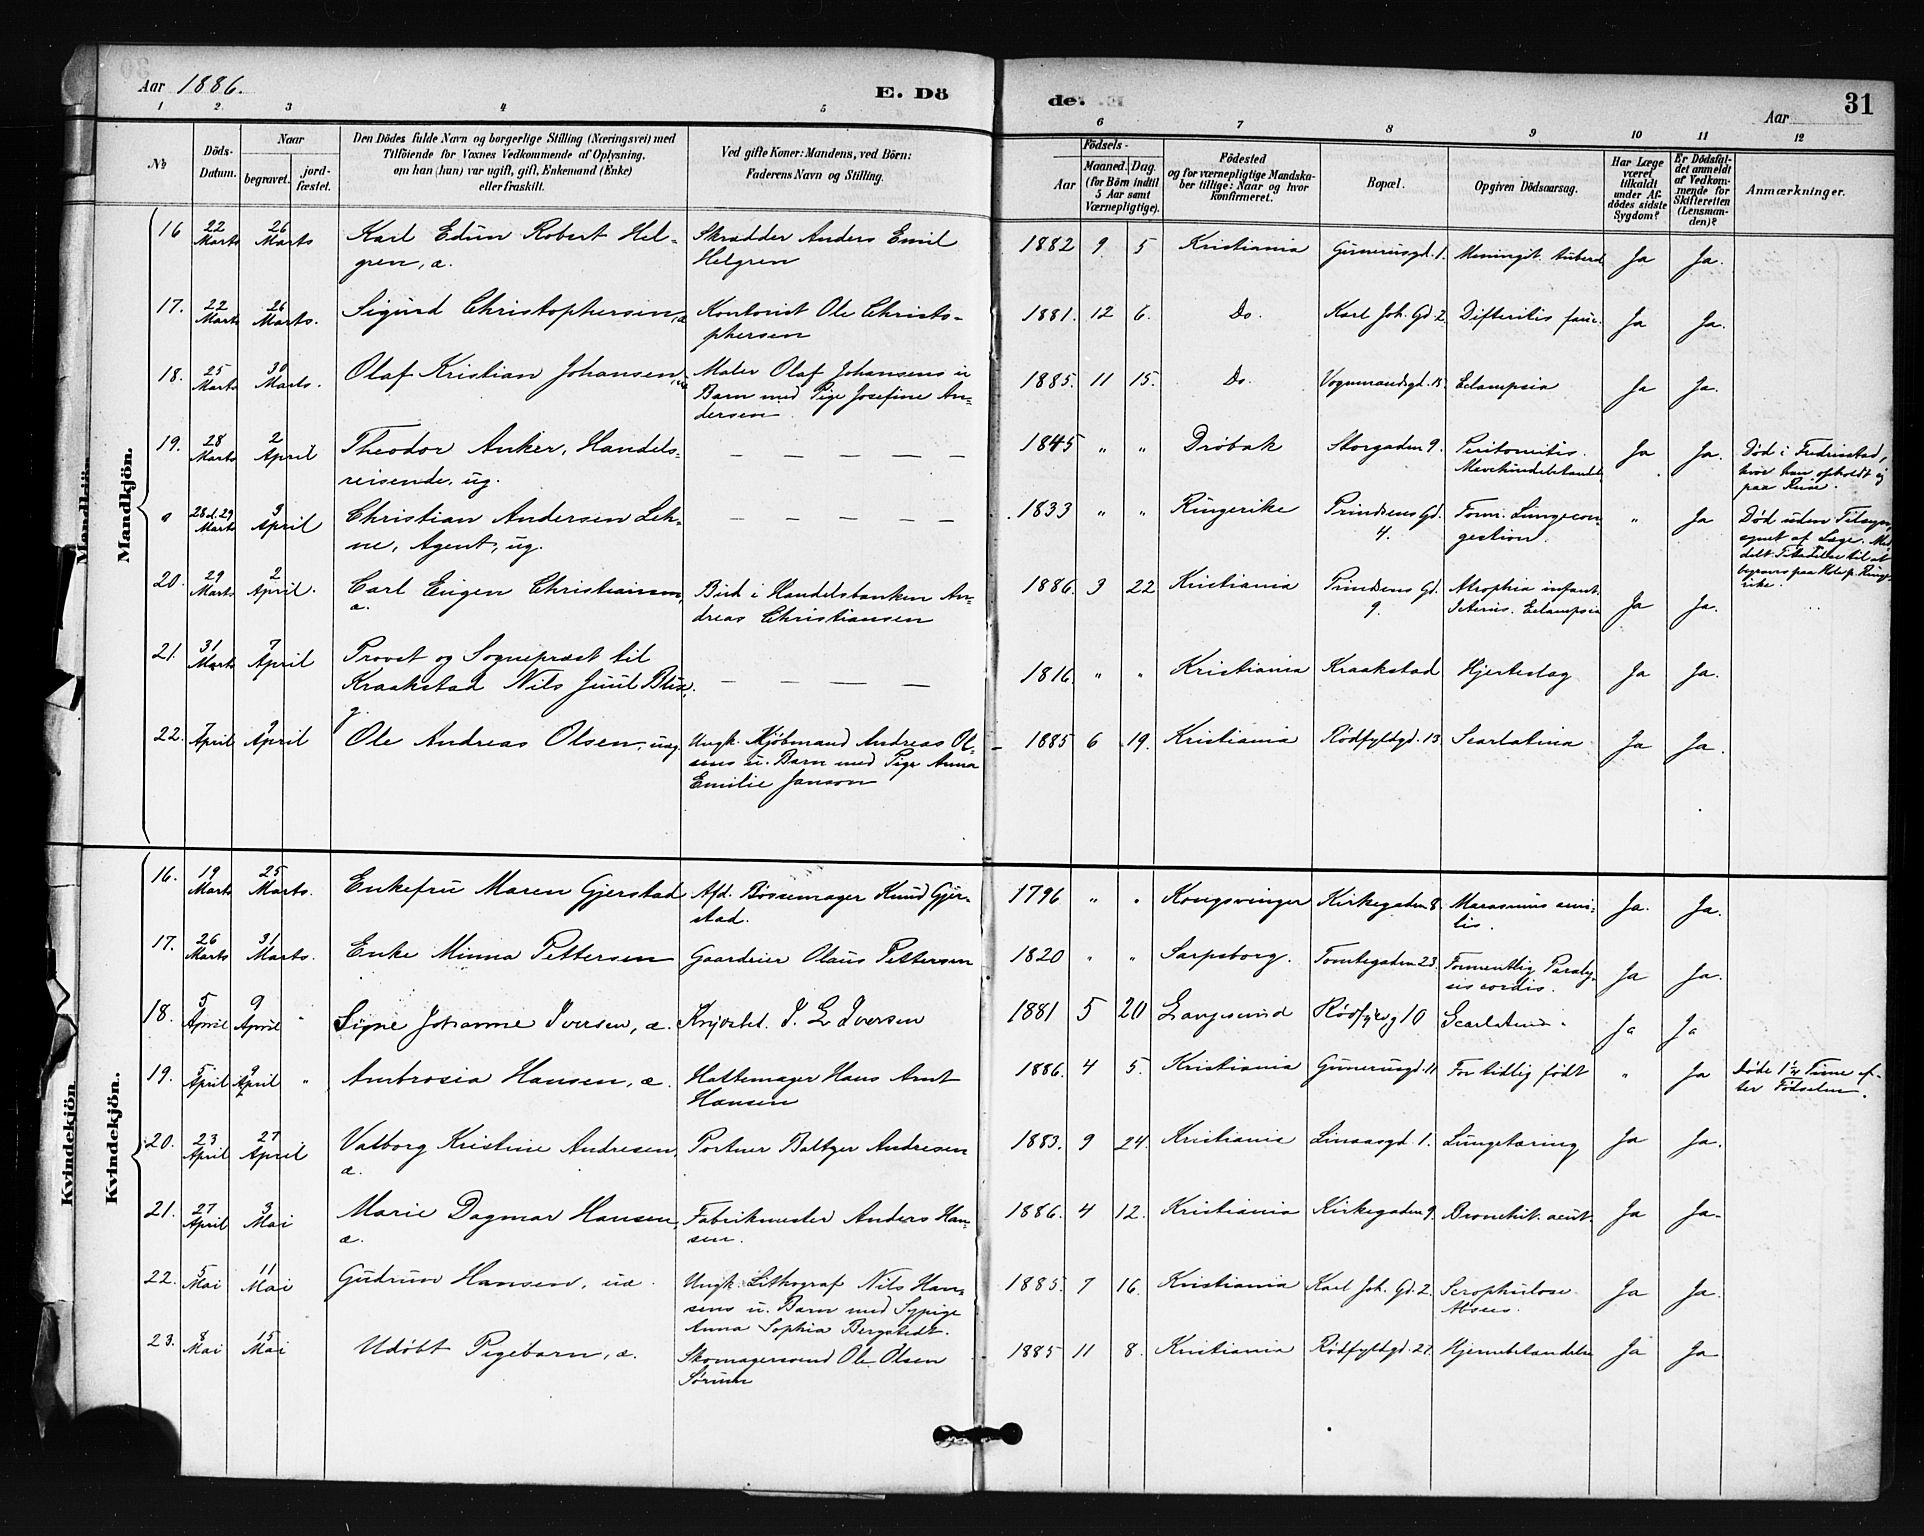 Aar 1886.
E. Dö
de.
Aar
31
1 2. 3 4 5 6 7 8 9 10 11 12
№
Döds-
Datum.
Naar
begravet.
jord-
fæstet.
Den Dödes fulde Navn og borgerlige Stilling (Næringsvei) med
Tilföiende for Voxnes Vedkommende af Oplysning,
om han (hun) var ugift, gift, Enkemand (Enke)
eller fraskilt.
Ved gifte Koner: Mandens, ved Börn:
Faderens Navn og Stilling.
Födsels-
Aar
Maaned. Dag.
(for Börn indtil
5 Aar samt
Værnepligtige).
Födested
og for værnepligtige Mandska-
ber tillige: Naar og hvor
konfirmeret.
Bopæl.
Opgiven Dödsaarsag.
Har Læge
været
tilkaldt
under Af-
dödes sidste
Sygdom?
Er Dödsfal-
det anmeldt
af Vedkom-
mende for
Skifteretten
(Lensman-
den)?
Anmærkninger.
Mandkjön.
16 22 Marts 26 Marts Karl Edvin Robert Hel-
gren, æ. Skrædder Anders Emil
Helgren 1882 9 5 Kristiania Gunerusgd. 1. Meningit. tubercl Ja Ja.
17. 22 Marts 26 Marts. Sigurd Christophersen, æ Kontorist Ole Christo-
phersen 1881. 12 6. Do. Karl Joh. Gd. 2. Difteritis fauc. Ja Ja.
18. 25 Marts 30 Marts. Olaf Kristian Johansen, uæ Maler Olaf Johansens u
Barn med Pige Josefine An-
dersen. 1885. 11 15. Do. Vognmandsgd. 15. Eclampsia Ja Ja.
19. 28 Marts 2 April Theodor Anker, Handels-
reisende, ug. — — — — — 1845 " " Drøbak Storgaden 9. Peritonitis.
Ja Ja. Død i Fredriksstad,
hvor han opholdt sig
paa Reise.
28 d. 29 Marts 3 April Christian Andersen Leh-
ne, Agent, ug. — — — — — 1833 " " Ringerike Prindsens Gd.
4. Form. Lungecon-
gestion. " Ja Død uden Tilsyn
af Læge.
20. 29 Marts 2 April. Carl Eugen Christiansen,
æ. Bud i Handelsbanken An-
dreas Christiansen 1886. 3 22 Kristiania Prindsens Gd.
9. Atrophia infant.
Icterus. Eclampsia Ja Ja.
21. 31 Marts 7 April Provst og Sogneprest til
Kraakstad Nils Juul Blix,
g. — — — — 1816. " " Kristiania Kraakstad Hjerteslag Ja Ja.
22. 7 April 9 April Ole Andreas Olsen, uæg. Ungk. Kjøbmand Andreas Ol-
sens u. Barn med Pige Anna
Emilie Janson 1885 6 19. Kristiania Rødfyldgd. 13 Scarlatina Ja Ja.
Kvindekjön.
16. 19 Marts 25 Marts. Enkefru Maren Gjerstad Afd. Bøssemager Knud Gjer-
stad. 1796 " " Kongsvinger Kirkegaden 8 Marasmus seni-
lis. Ja. Ja.
17. 26 Marts 31 Marts. Enke Minna Pettersen Gaardeier Olaus Pettersen 1820 " " Sarpsborg. Tomtegaden 23. Formentlig Paraly-
sis cordis. Ja Ja.
18. 5 April 9 April " Signe Johanne Iversen, æ. I. L Iversen 1881 5 20 Langesund 10 Scarlatina. Ja Ja
19. 5 April 9 April " Ambrosia Hansen, æ. Hattemager Hans Arnt
Hansen 1886. 4 5. Kristiania Gunerusgd. 11 For tidlig født " Ja Døde 1¼ Time ef-
ter Fødselen.
20. 23 April 27 April Valborg Kristine Andresen,
æ. Portner Baltzer Andresen 1883. 9 24. Kristiania Linaasgd. 1. Lungetæring Ja Ja.
21. 27 April 3 Mai Marie Dagmar Hansen,
æ. Fabrikmester Anders Han-
sen. 1886. 4 12. Kristiania Kirkegaden 9. Bronchit. acut. Ja Ja.
22. 5 Mai 11 Mai Gudrun Hansen, uæ. Ungk. Lithograf Nils Han-
sens u. Barn med Sypige
Anna Sophia Bergstedt. 1885. 7 16. Kristiania Karl Joh. Gd. 2. Scrophulose.
Absces. Ja Ja.
23. 8 Mai 15 Mai Udøbt Pigebarn, æ. Skomagersvend Ole Olsen
Sørum 1885 11 8. Kristiania Rødfyldgd. 21. Hjernebetændelse Ja Ja